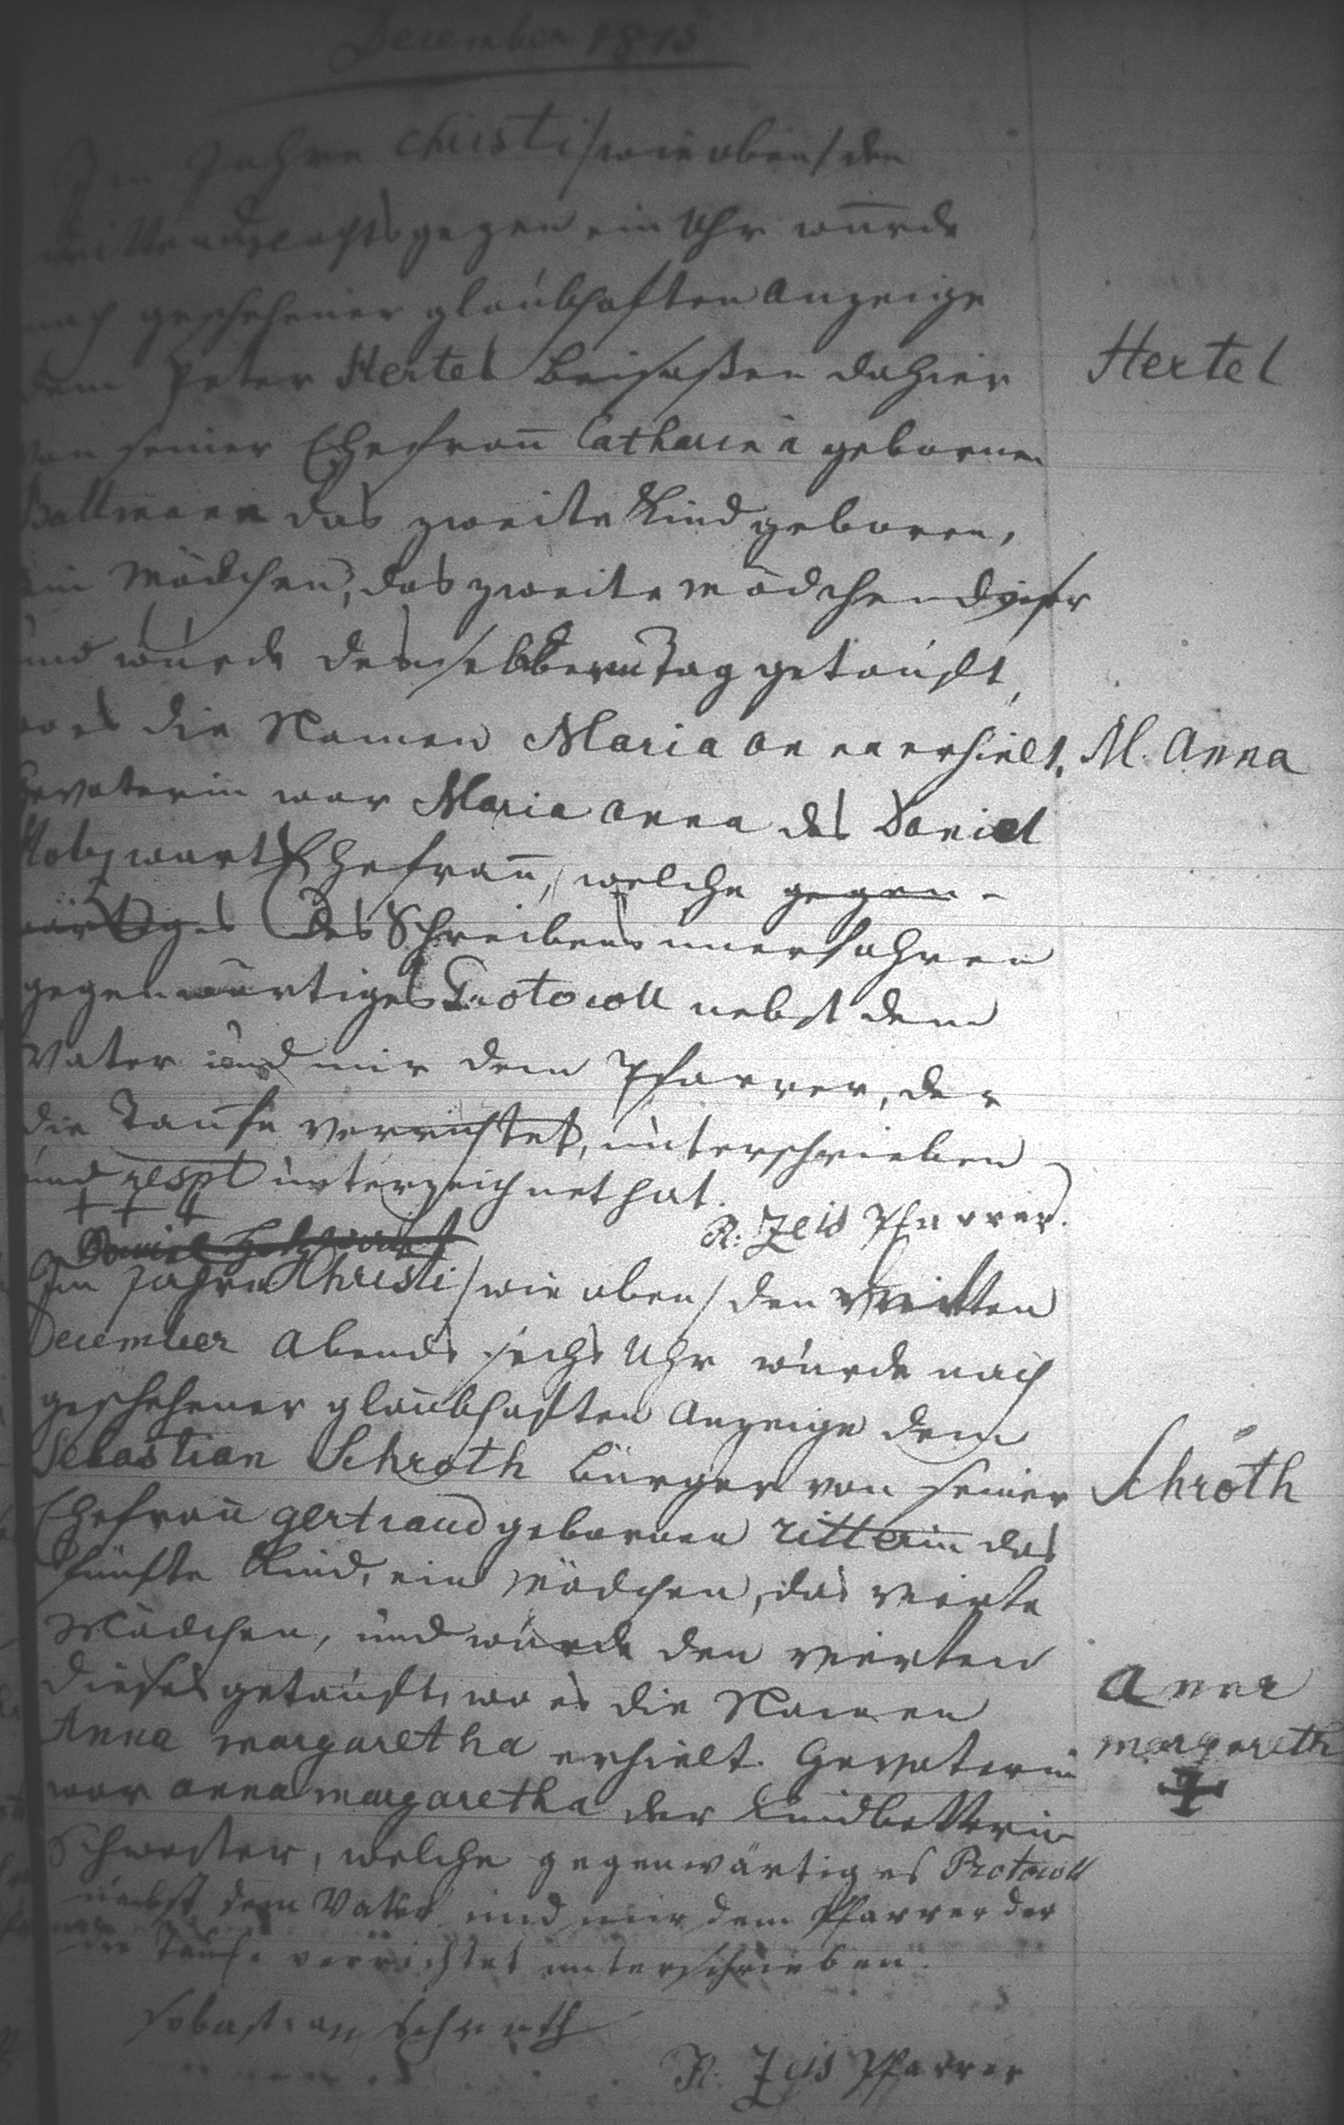 December 1815
Im Jahre Christi /wie oben/ den
dritten Nachts gegen ein Uhr wurde
nach geschehener glaubhaften Anzeige
dem Peter Hertel Beisaßen dahier
Hertel
von seiner Ehefrau Catharina gebornen
das zweite Kind geboren,
ein Mädchen, das zweite Mädchen dieser
und wurde denselben Tag getauft,
wo es die Namen Maria Anna erhielt.
M. Anna
Gevaterin war Maria Anna des Daniel
Holzwart Ehefrau, welche gegen-
wärtiges des Schreibens unerfahren
gegenwärtiges Protocoll nebst dem
Vater und mir dem Pfarrer, der
die Taufe verrichtet, unterschrieben
und respt unterzeichnet hat.
+ + +
R: Zeis Pfarrer.
Daniel Holzwart
Im Jahre Christi /wie oben/ den dritten
December Abends sechs Uhr wurde nach
geschehener glaubhaften Anzeige dem
Sebastian Schroth Bürger von seiner
Schroth
Ehefrau Gertraud gebornen Ritterin das
fünfte Kind, ein Mädchen, das vierte
Mädchen, und wurde den vierten
dieses getauft, wo es die Namen
Anna
Anna Margaretha erhielt. Gevaterin
margareth
war Anna Margaretha der Kindbetterin
Schwester, welche gegenwärtiges Protocoll
nebst dem Vater und mir dem Pfarrer der
die Taufe verrichtet unterschrieben.
Sebastian Schroth
R: Zeis Pfarrer